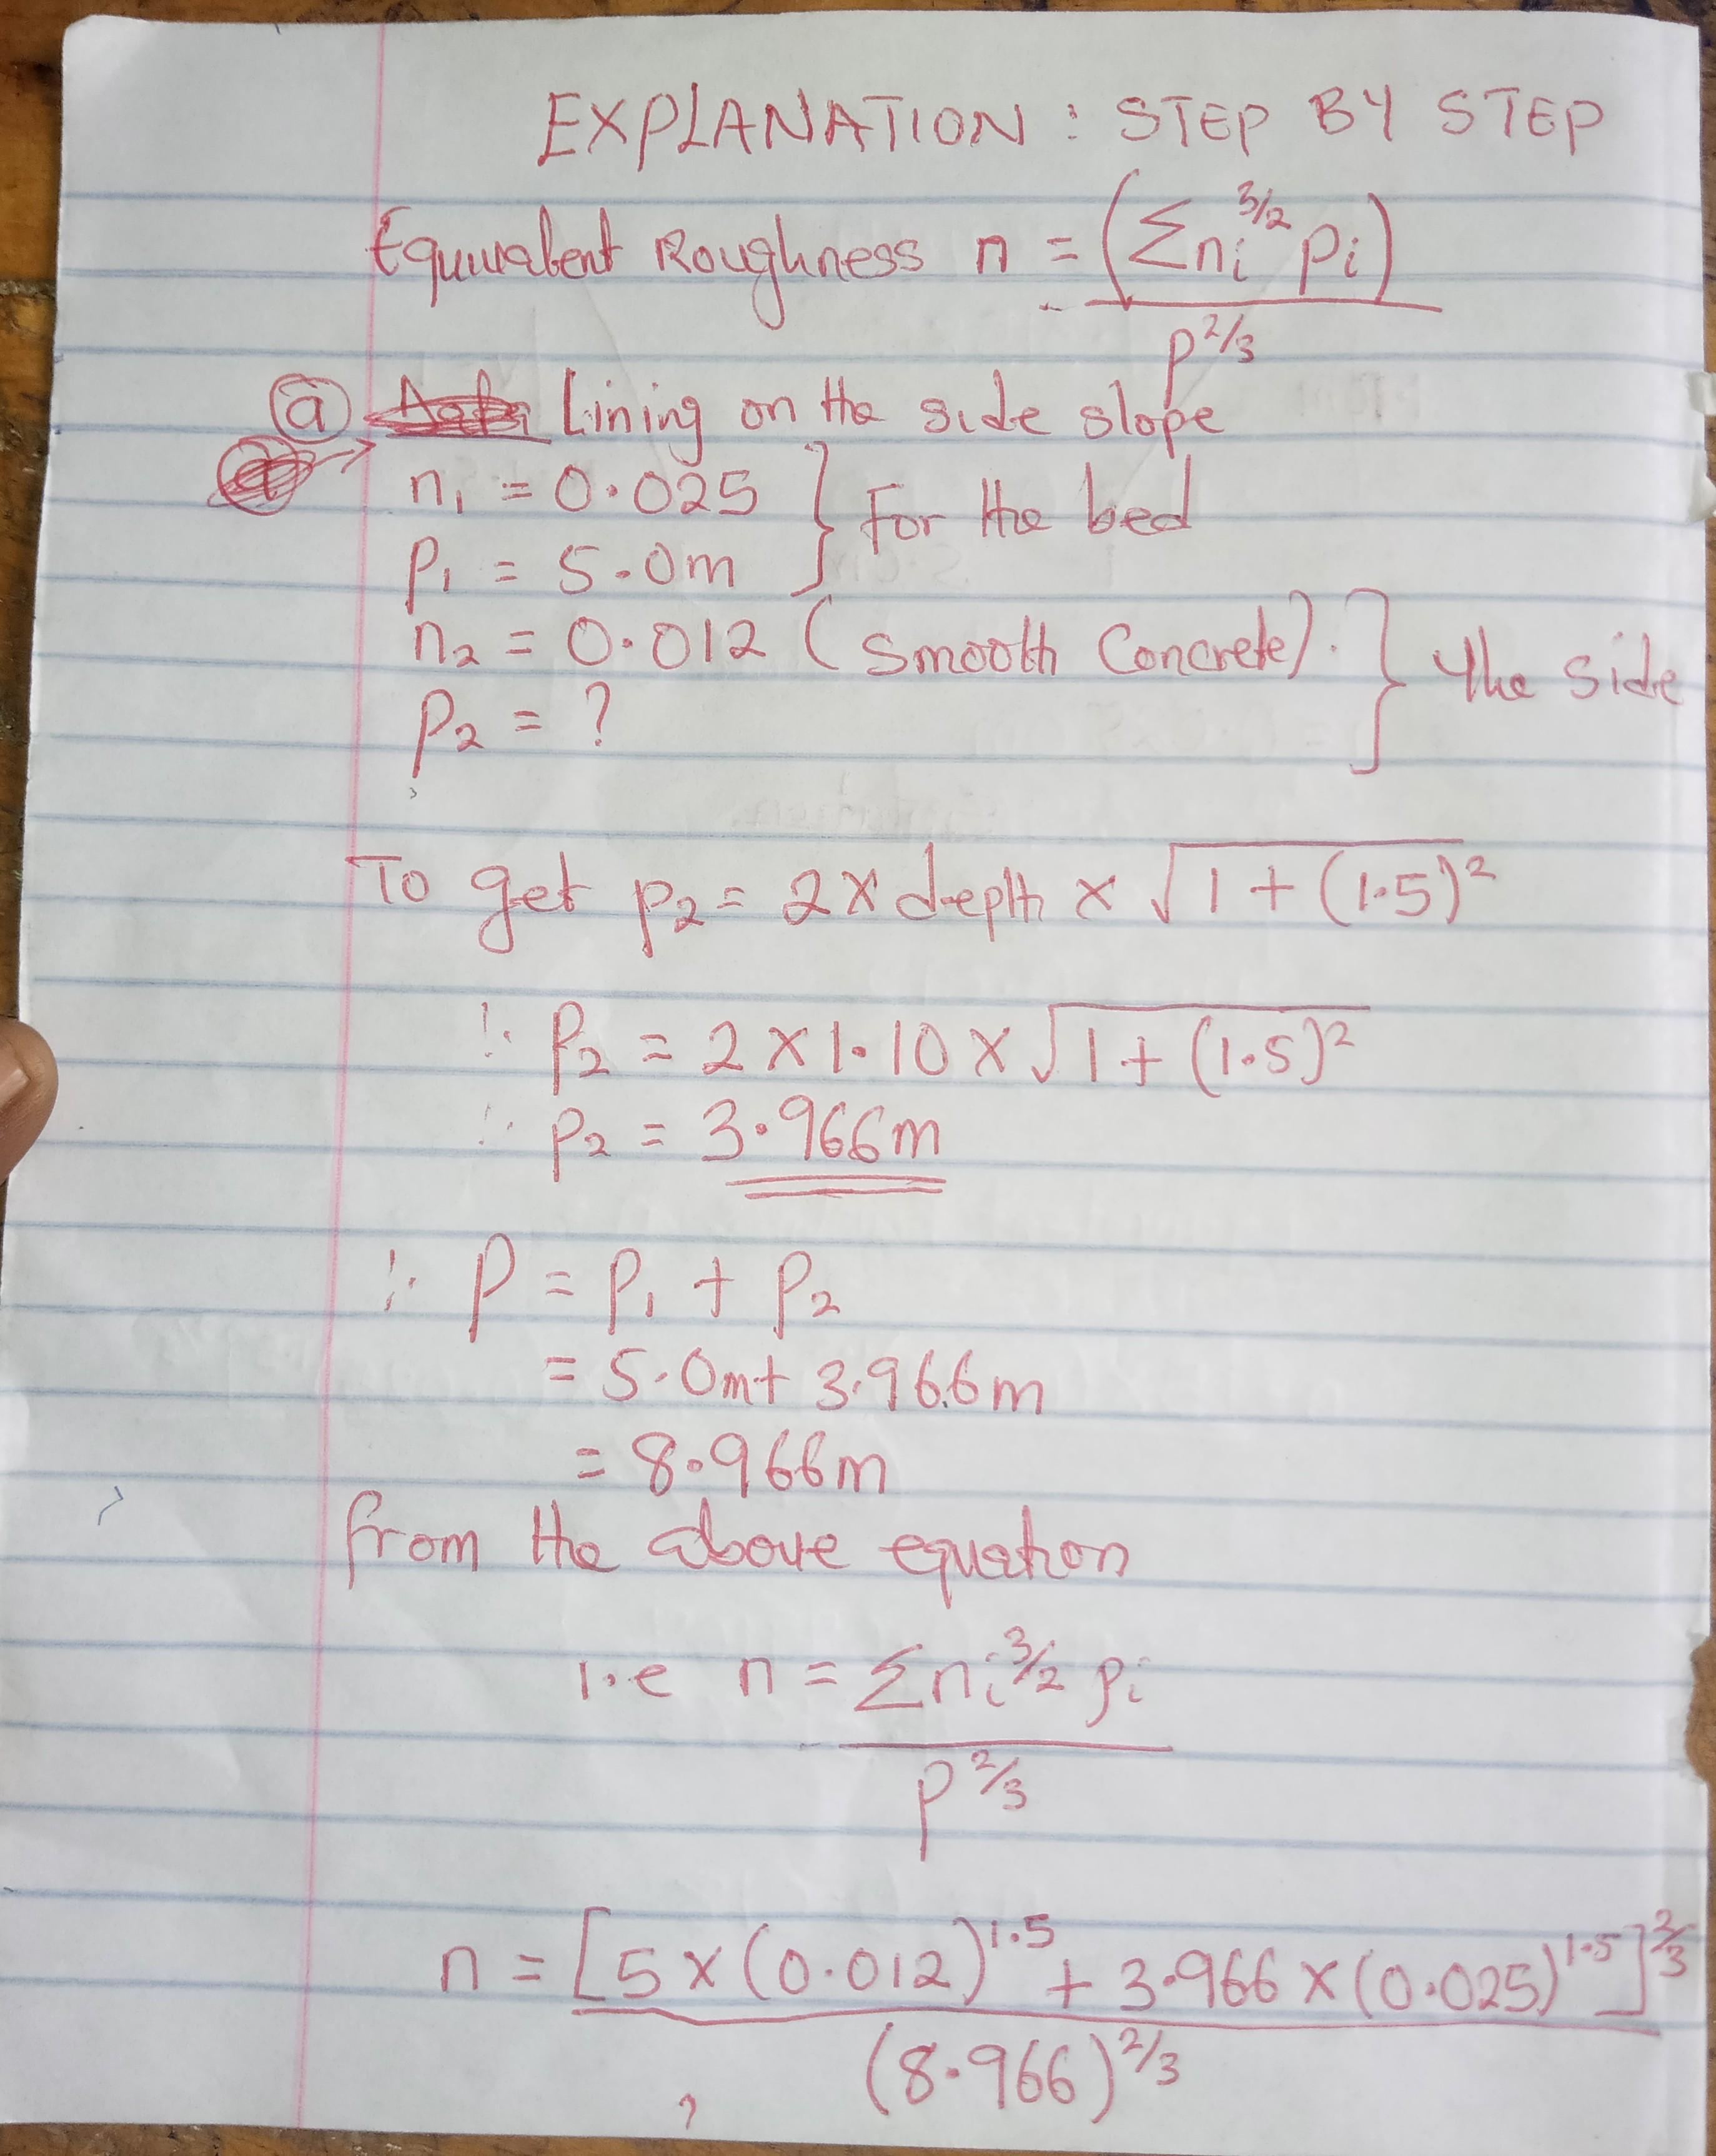 EXPLANATION : STEP BY STEP
Equivalent Roughness n = (Σnᵢ^3/2 pᵢ)
p^2/3
(a) Lining on the side slope
n₁ = 0.025 } For the bed
P₁ = 5.0m
n₂ = 0.012 (Smooth Concrete). } The side
P₂ = ?
To get p₂ = 2 x depth x √1 + (1.5)²
∴ P₂ = 2 x 1.10 x √1 + (1.5)²
∴ p₂ = 3.966m
∴ P = P₁ + P₂
= 5.0m + 3.966m
= 8.966m
from the above equation
i.e n = Σnᵢ^3/2 pᵢ
P^2/3
n = [5 x (0.012)^1.5 + 3.966 x (0.025)^1.5]^2/3
(8.966)^2/3